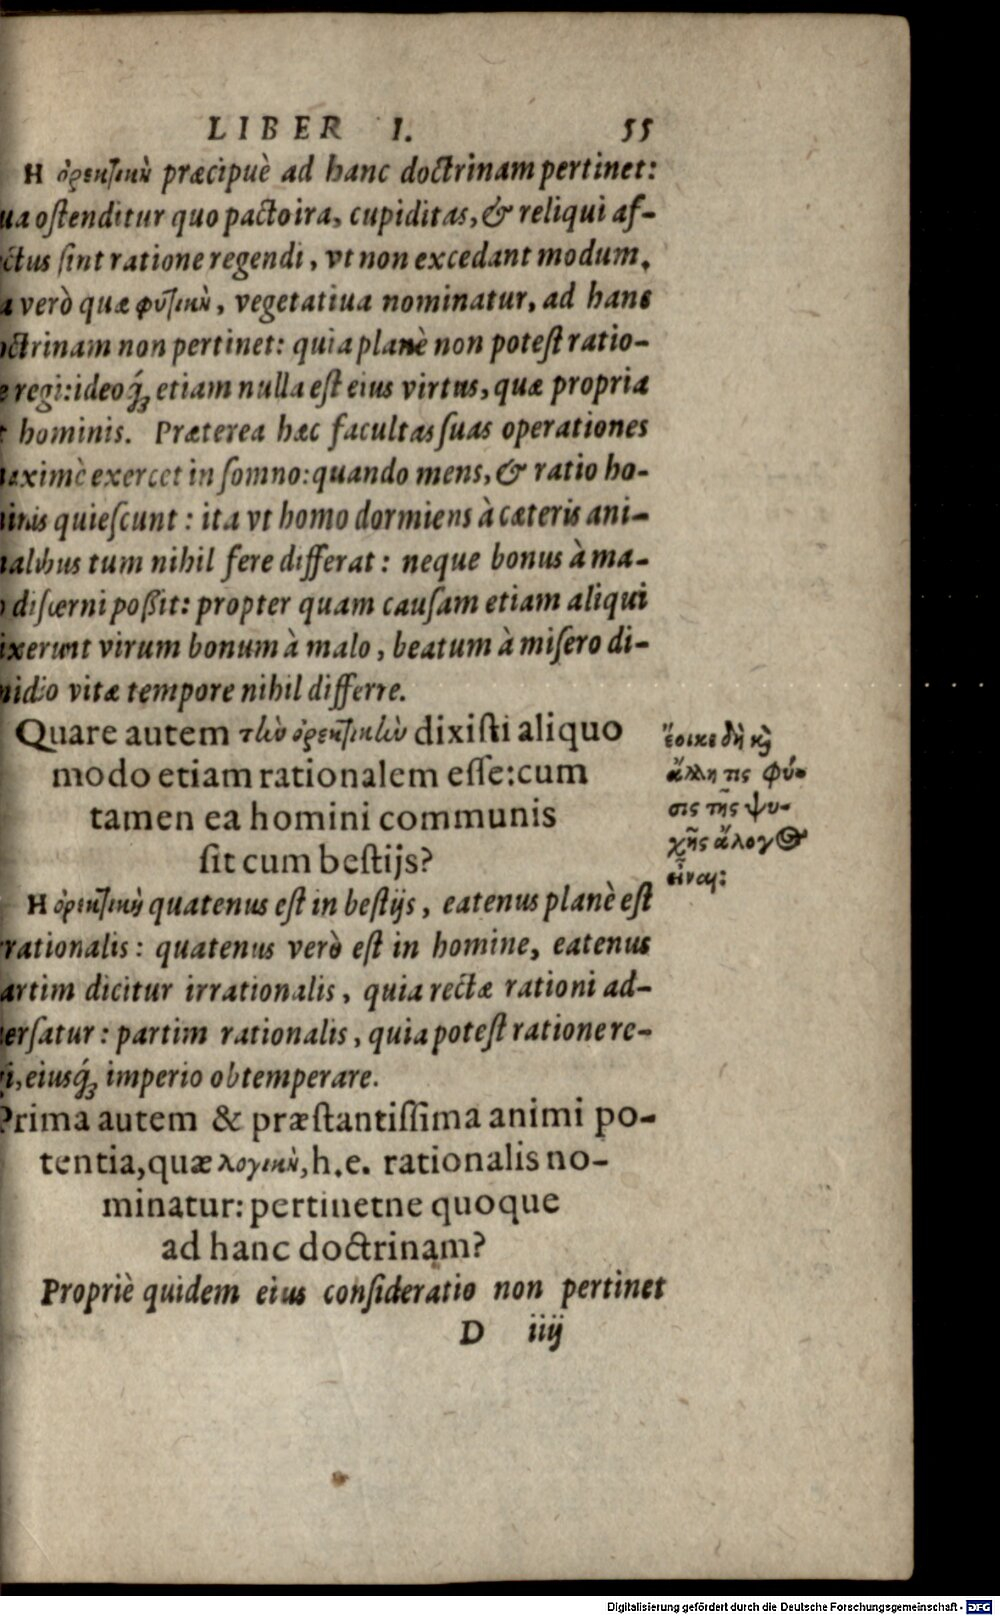 LIBER I. 55
H ὀρεκτικὴ præcipuè ad hanc doctrinam pertinet:
ua ostenditur quo pacto ira, cupiditas, & reliqui af-
ctus sint ratione regendi, vt non excedant modum.
a verò quæ φυτικὴ, vegetatiua nominatur, ad hanc
octrinam non pertinet: quia planè non potest ratio-
e regi: ideoq́ꝫ etiam nulla est eius virtus, quæ propria
t hominis. Præterea hæc facultas suas operationes
maximè exercet in somno: quando mens, & ratio ho-
minis quiescunt: ita vt homo dormiens à cæteris ani-
malibus tum nihil fere differat: neque bonus à ma-
o discerni poßit: propter quam causam etiam aliqui
ixerunt virum bonum à malo, beatum à misero di-
midio vitæ tempore nihil differre.
Quare autem τὴν ὀρεκτικὴν dixisti aliquo
modo etiam rationalem esse: cum
tamen ea homini communis
sit cum bestijs?
ἔοικε δὴ καὶ
ἄλλη τις φύ-
σις τῆς ψυ-
χῆς ἄλογος
εἶναι:
H ὀρεκτικὴ quatenus est in bestijs, eatenus planè est
rrationalis: quatenus verò est in homine, eatenus
artim dicitur irrationalis, quia rectæ rationi ad-
uersatur: partim rationalis, quia potest ratione re-
gi, eiusq́ꝫ imperio obtemperare.
Prima autem & præstantissima animi po-
tentia, quæ λογικὴ, h.e. rationalis no-
minatur: pertinetne quoque
ad hanc doctrinam?
Propriè quidem eius consideratio non pertinet
D iiij
Digitalisierung gefördert durch die Deutsche Forschungsgemeinschaft - DFG